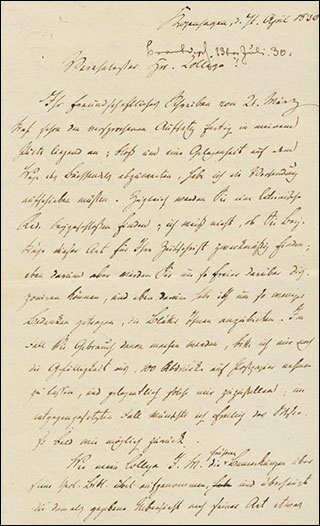 Kopenhagen, d. 71. April 1830
13ten Juli. 30.
Verehrtester Hr. Collega!
Ihr freundschaftliches Schreiben vom 21. März
traf schon den versprochenen Aufsatz fertig in meinem
Pulte liegend an; bloß um eine Gelegenheit auf dem
Wege des Buchhandels abzuwarten, habe ich die Versendung
aufschieben müssen. Zugleich werden Sie eine lateinische
Rede beigeschlossen finden; ich weiß nicht, ob Sie Bey-
träge dieser Art für Ihre Zeitschrift zweckmäßig finden;
eben darum aber werden Sie um so freier darüber dis-
poniren können, und eben darum habe ich um so weniger
Bedenken getragen, die Blätter Ihnen anzubieten. Im
Fall Sie Gebrauch davon machen werden, bitte ich mir noch
die Gefälligkeit aus, 100 Abdrücke auf Postpapier nehmen
zu lassen, und gelegentlich selbst mir zuzustellen; im
entgegengesetzten Fall wünschte ich freilich das
so bald wie möglich zurück.
Wie mein College J. M. die Bemerkungen über
seine aufgenommen, und
die damals gegebene Uebersicht nach seiner Art etwas